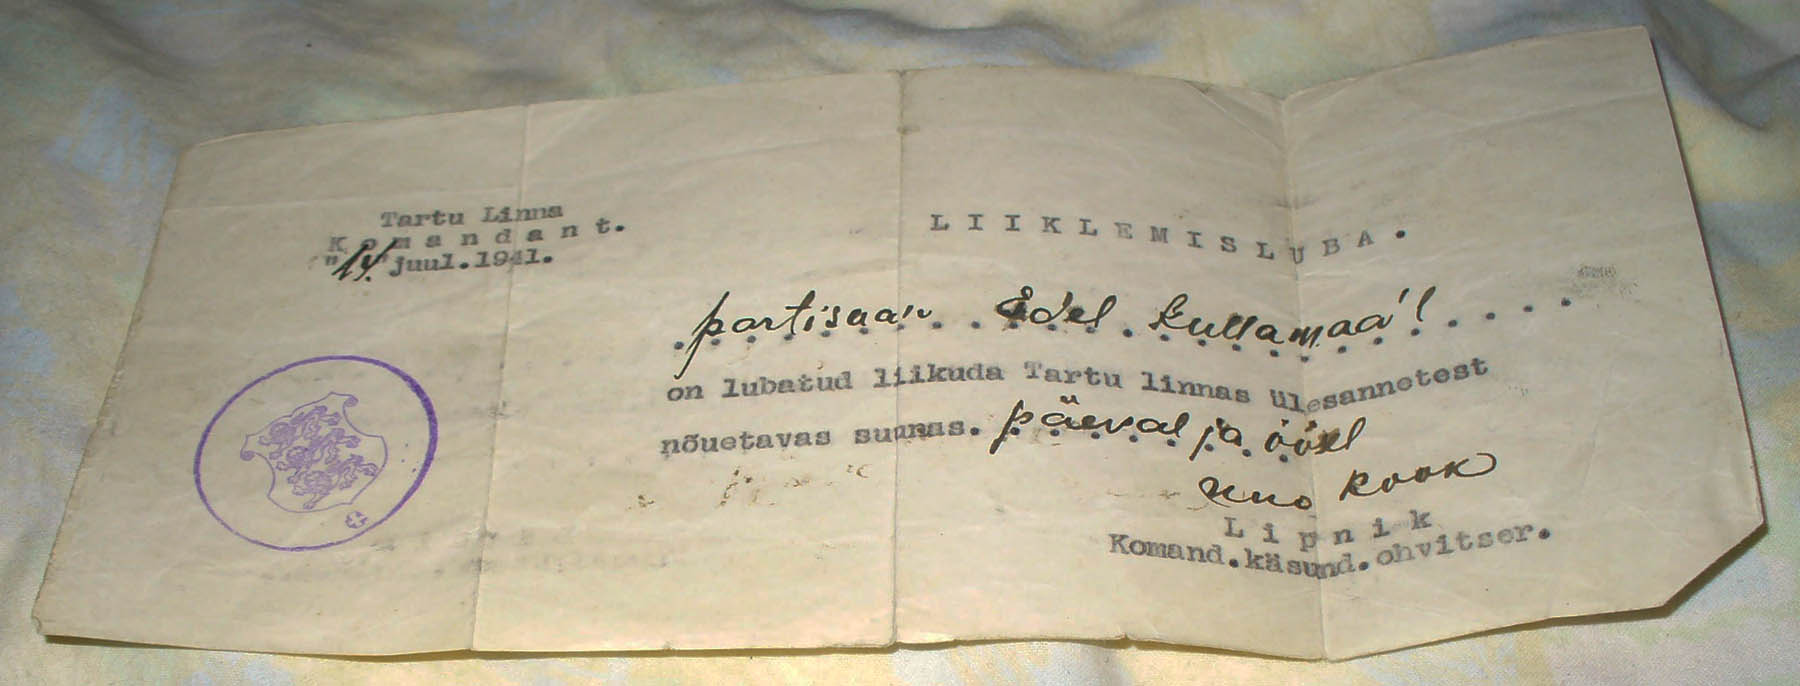 Tartu Linna
Komandant.
"14."juul.1941.
LIIKLEMISLUBA.
partisaan Edel Kullamaa'l
on lubatud liikuda Tartu linnas ülesannetest
nõuetavas suunas. päeval ja öösel
Uno Kook
Lipnik
Komand.käsund.ohvitser.